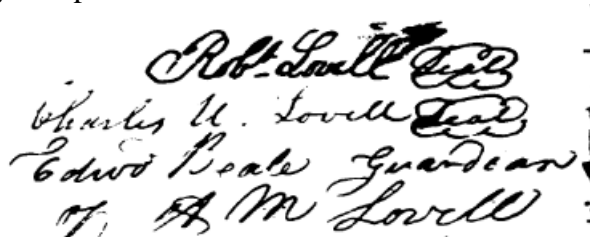 Robt. Lovell Seal
Charles U. Lovell Seal
Edwd Beale Guardian
of A M Lovell